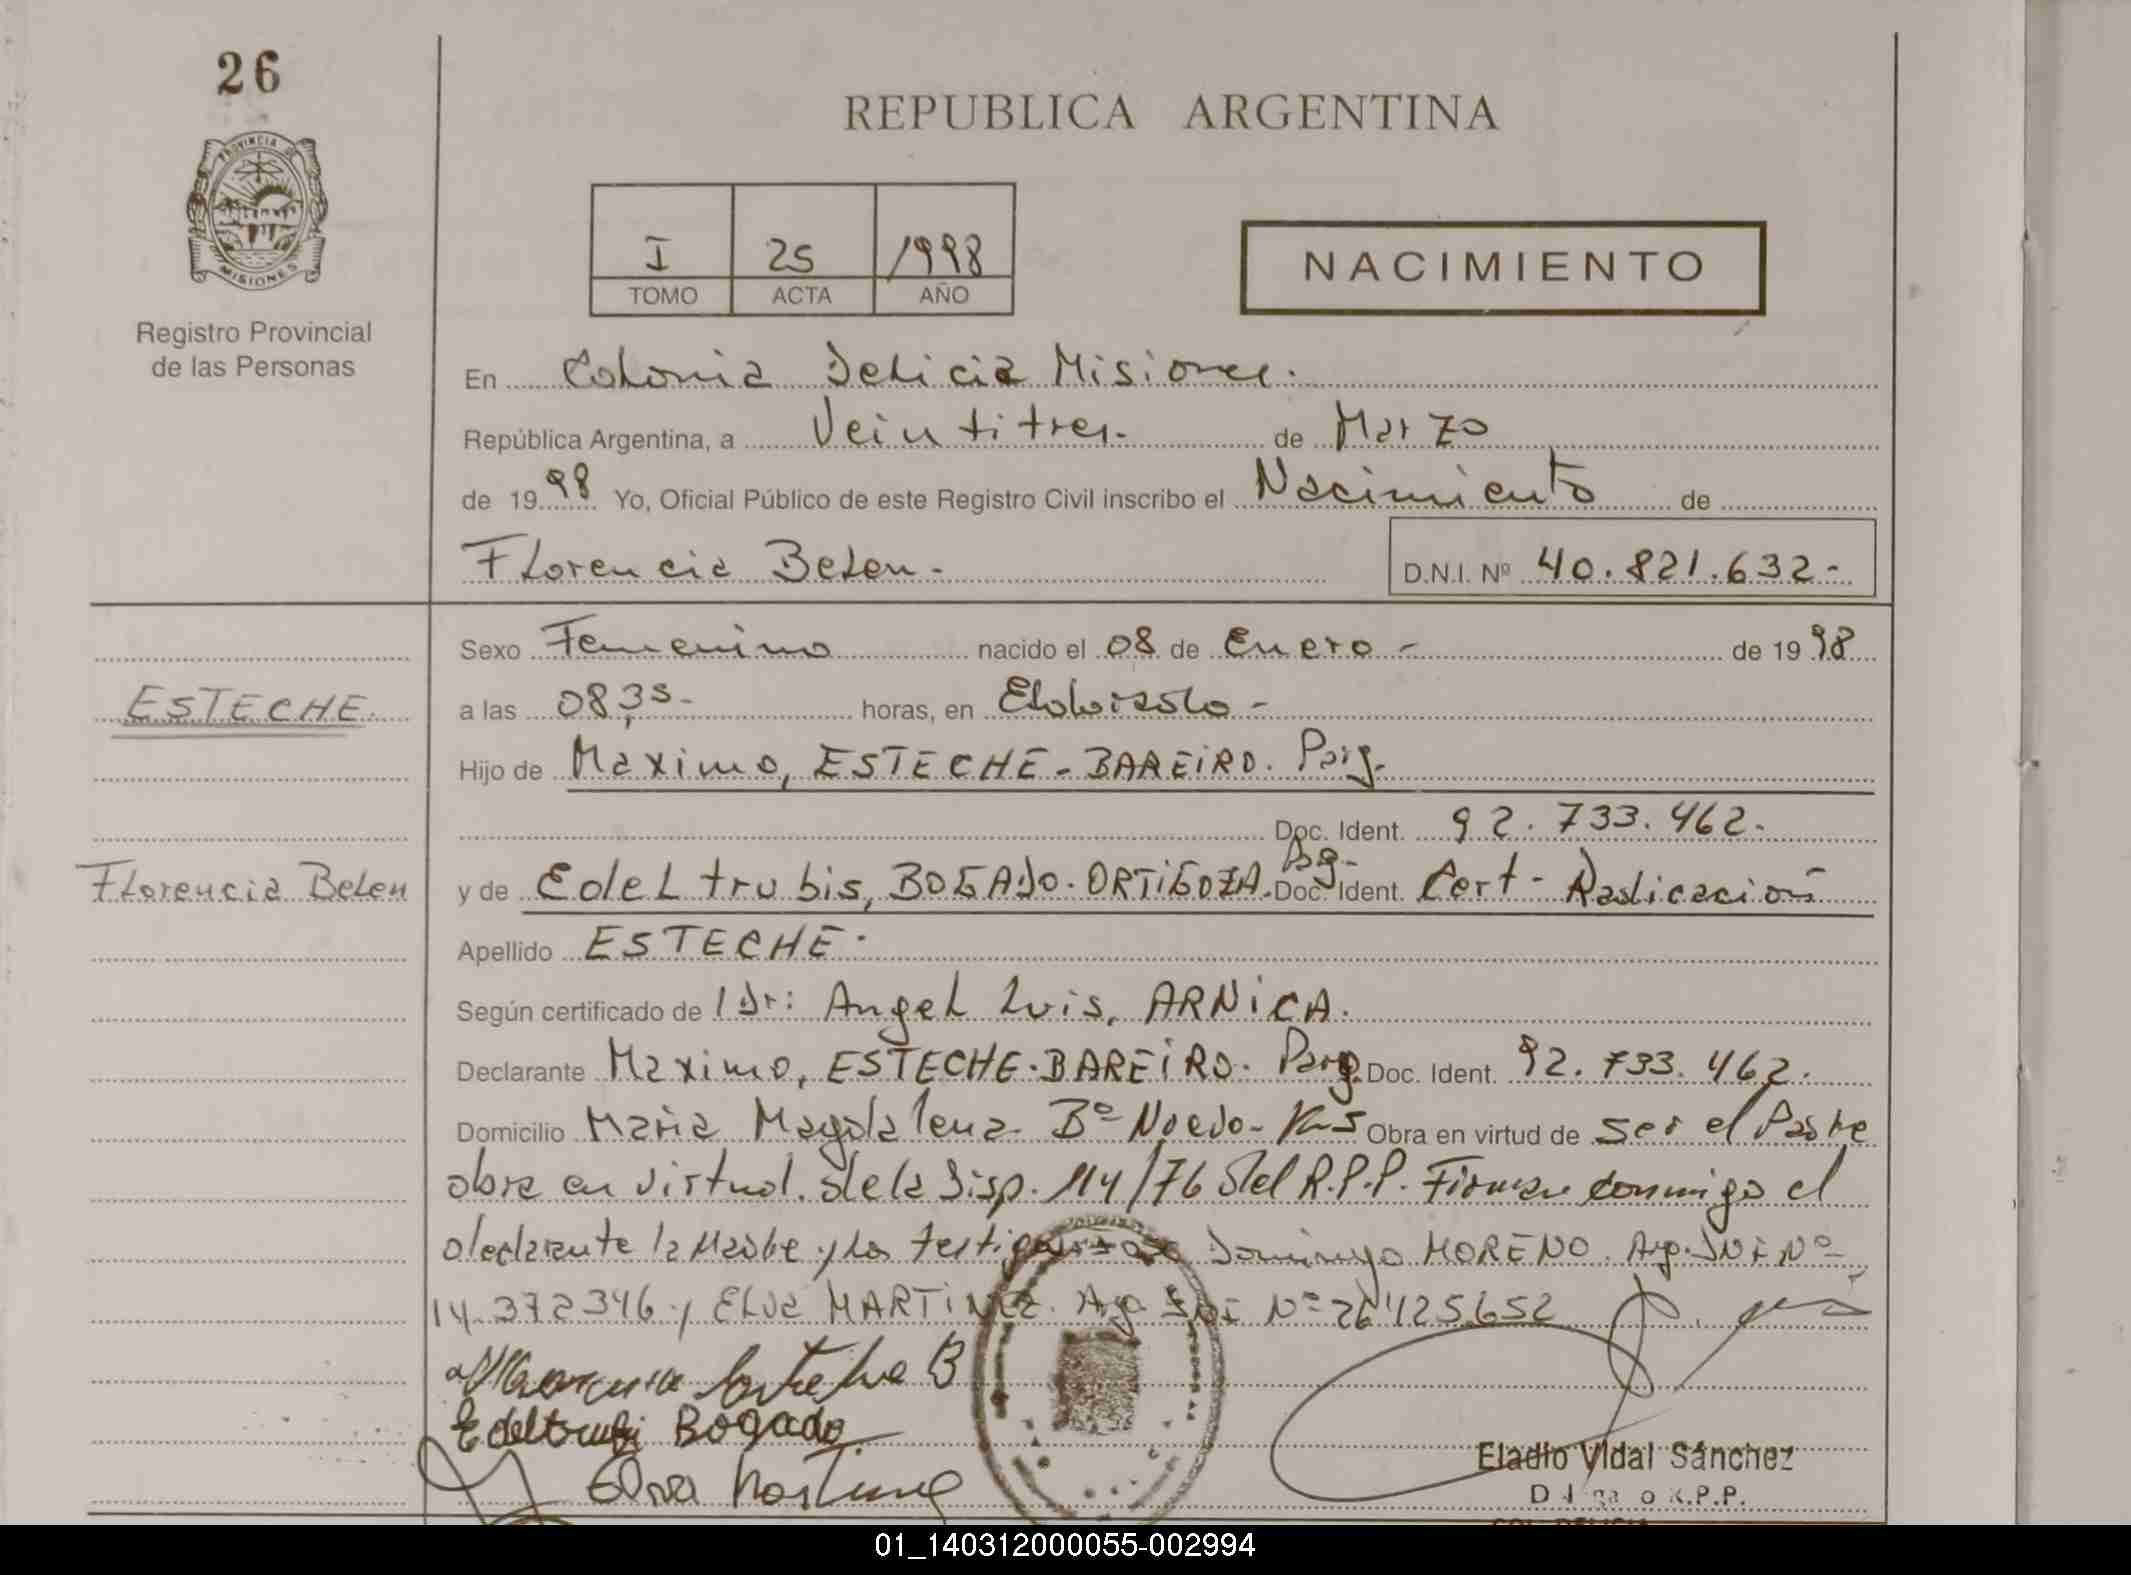 26
PROVINCIA DE
MISIONES
Registro Provincial
de las Personas
REPUBLICA ARGENTINA
I 25 1998
TOMO ACTA AÑO
NACIMIENTO
En Colonia Delicia Misiones.
República Argentina, a Veintitres.- de Marzo
de 1998 Yo, Oficial Público de este Registro Civil inscribo el Nacimiento de
Florencia Belen.- D.N.I. Nº 40.821.632-
Sexo Femenino nacido el 08 de Enero - de 1998
ESTECHE.
a las 08,35- horas, en Eldorado -
Hijo de Maximo, ESTECHE-BAREIRO. Parg.
Doc. Ident. 92.733.462.
Florencia Belen
y de Edeltrubis, BOGADO-ORTIGOZA. Doc. Ident. Cert- Radicacion
Apellido ESTECHE.
Según certificado de l Dr: Angel Luis, ARNICA.
Declarante Maximo, ESTECHE-BAREIRO. Parg. Doc. Ident. 92.733.462.
Domicilio Maria Magdalena Bº Nuevo- Obra en virtud de ser el Padre
obra en virtud. de la Disp. 114/76 del R.P.P. Firman conmigo el
declarante la Madre y los testigos Domingo MORENO. Arg. DNI Nº
14.372346 y Elva MARTINEZ. Arg. DNI Nº 26425652
Esteche B
Edeltrubi Bogado
Elva Martinez
Eladio Vidal Sánchez
R.P.P.
COL. DELICIA
01_140312000055-002994